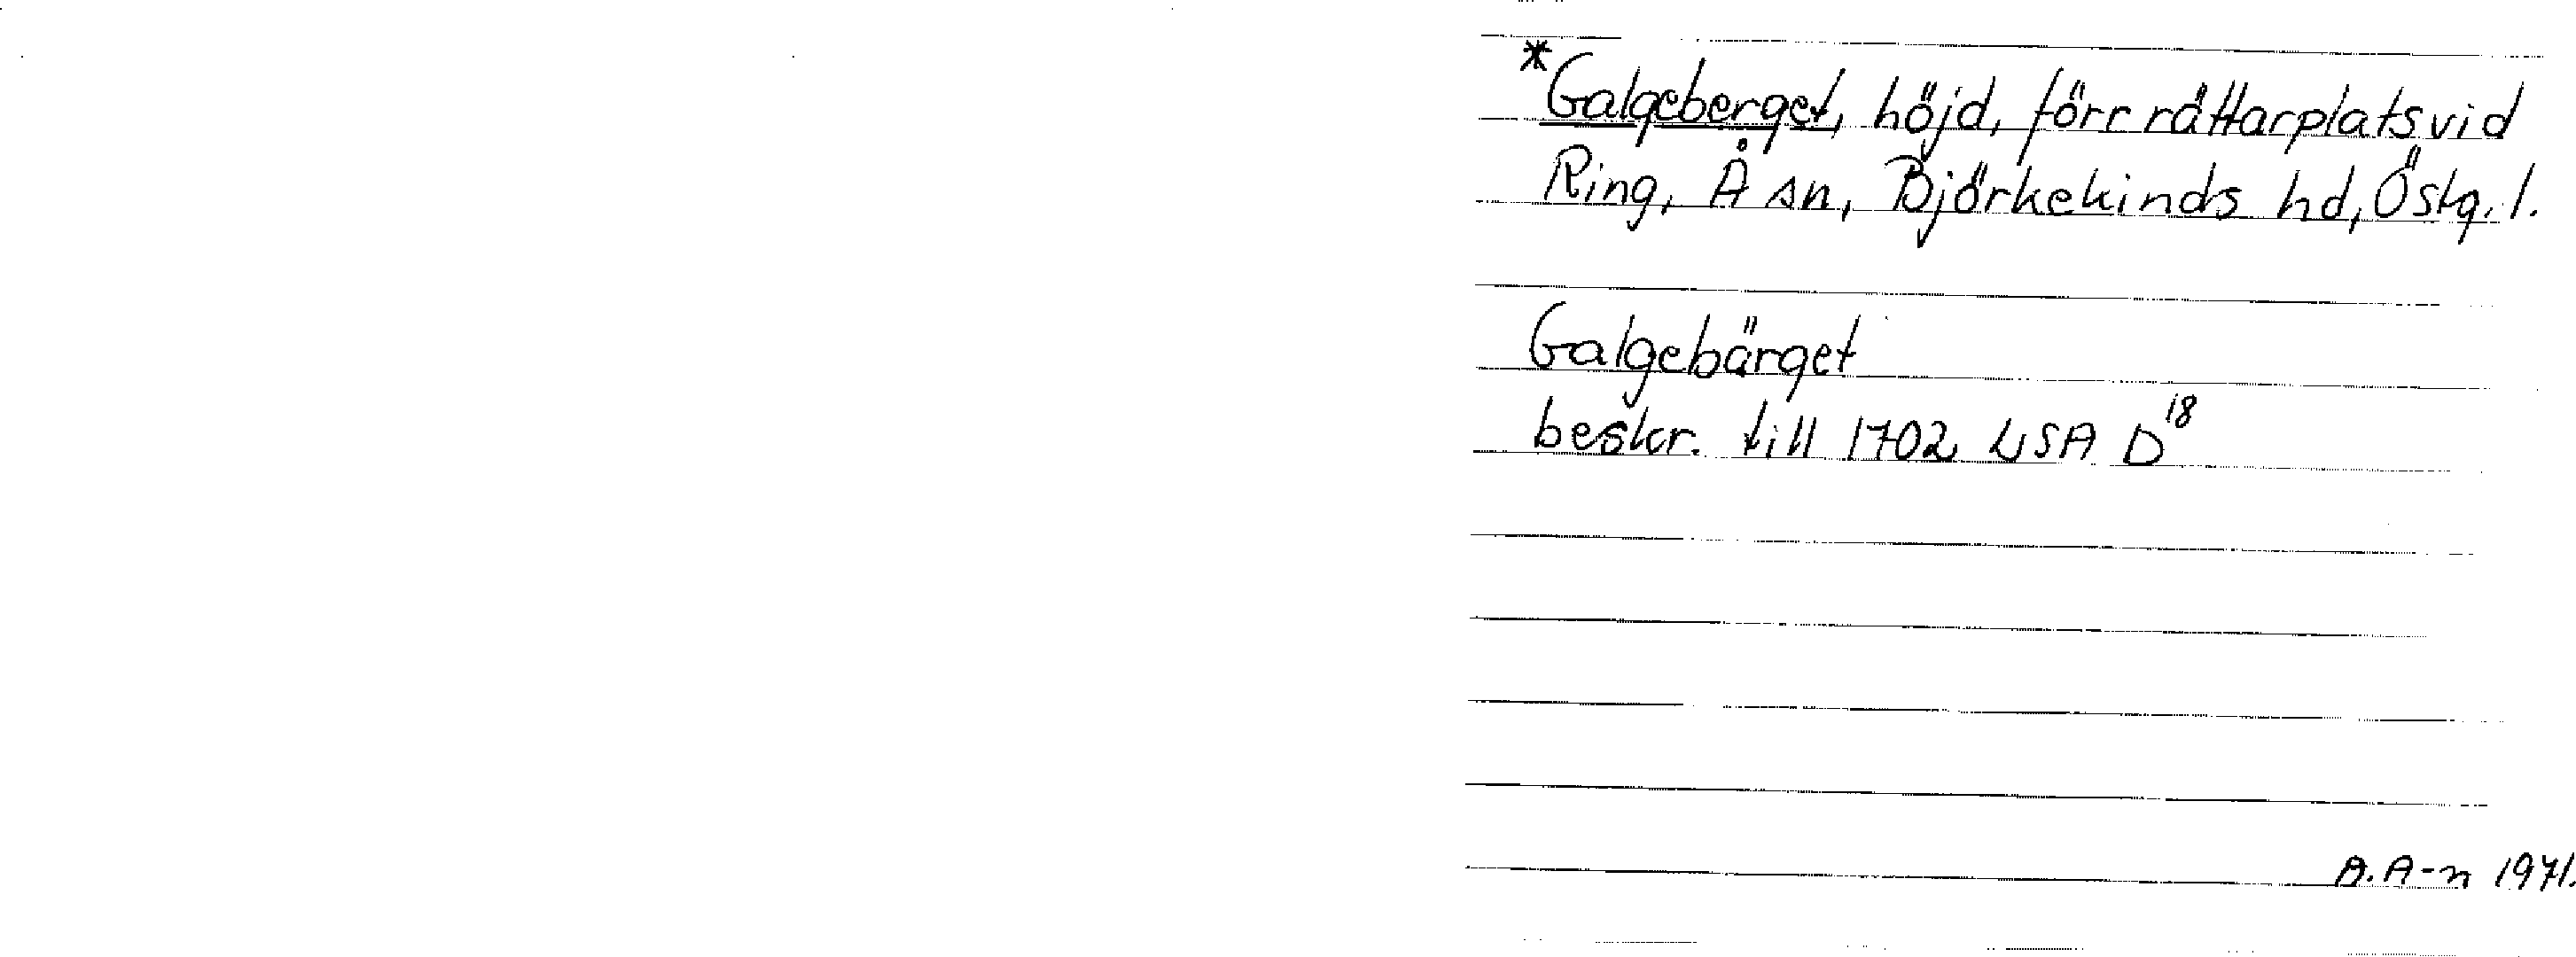 *Galgeberget, höjd, förr rättarplats vid
Ring, Å sn, Björkekinds hd, Östg. l.
Galgebärget
beskr. till 1702 LSA D18
A. A-n 1971.